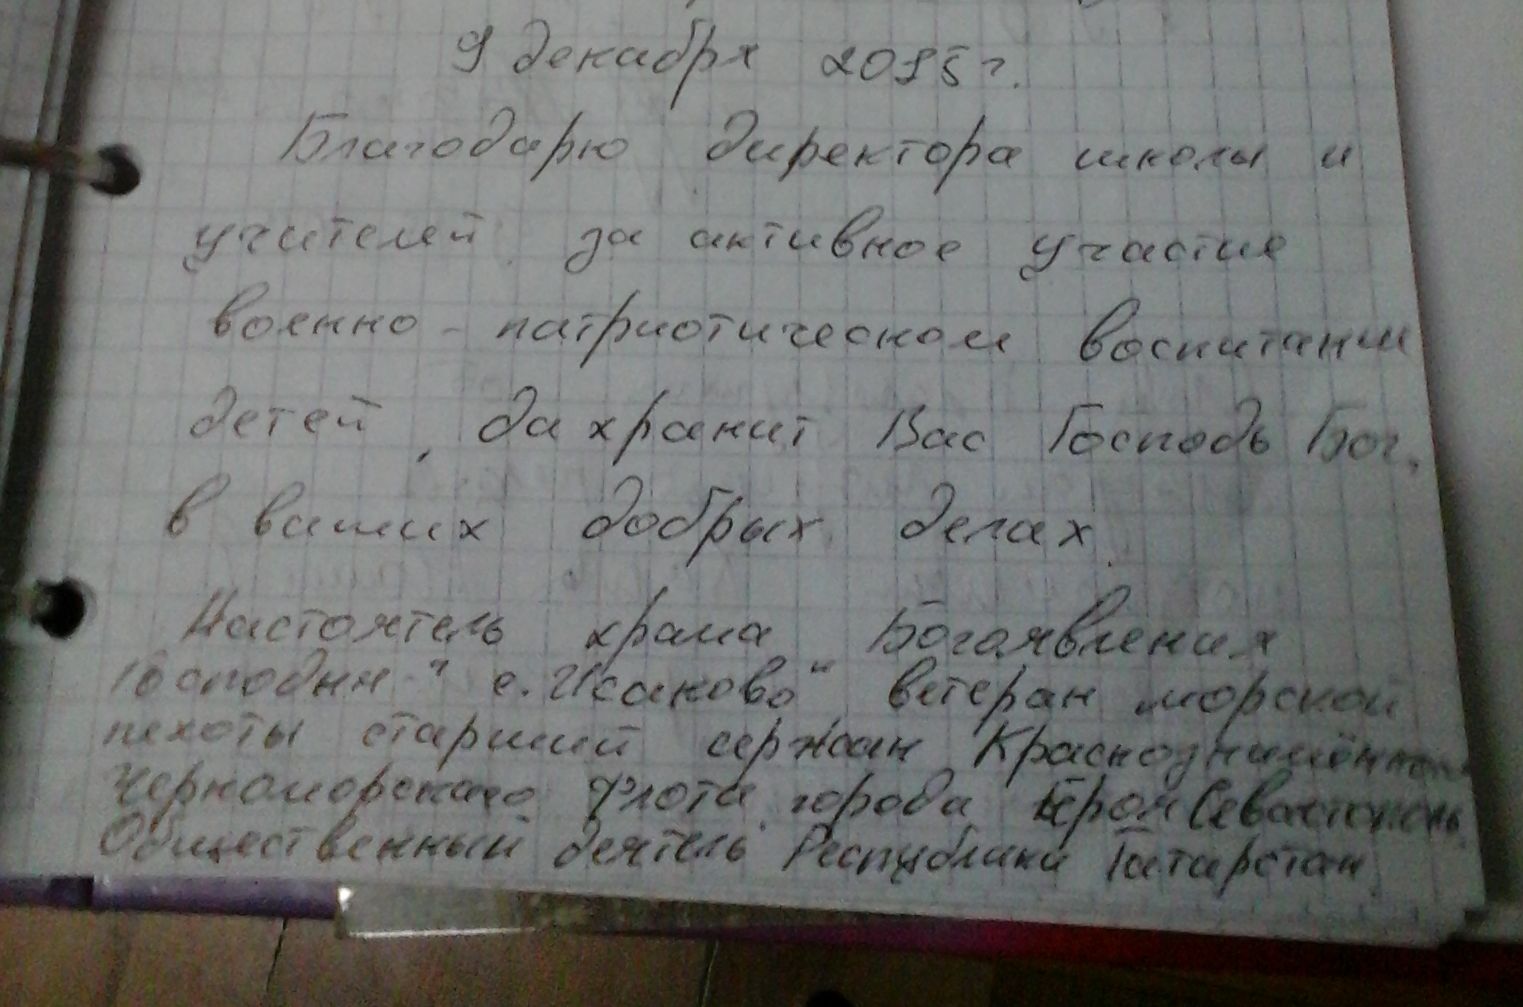 9 декабря 2015 г.
Благодарю директора школы и
учителей за активное участие
военно-патриотическом воспитании
детей, да хранит Вас Господь Бог,
в ваших добрых делах.
Настоятель храма Богоявления
Господня " с. Исаково" ветеран морской
пехоты старший сержан Краснознамённого
Черноморского флота, города Героя Севастополь,
Общественный деятель Республики Татарстан.